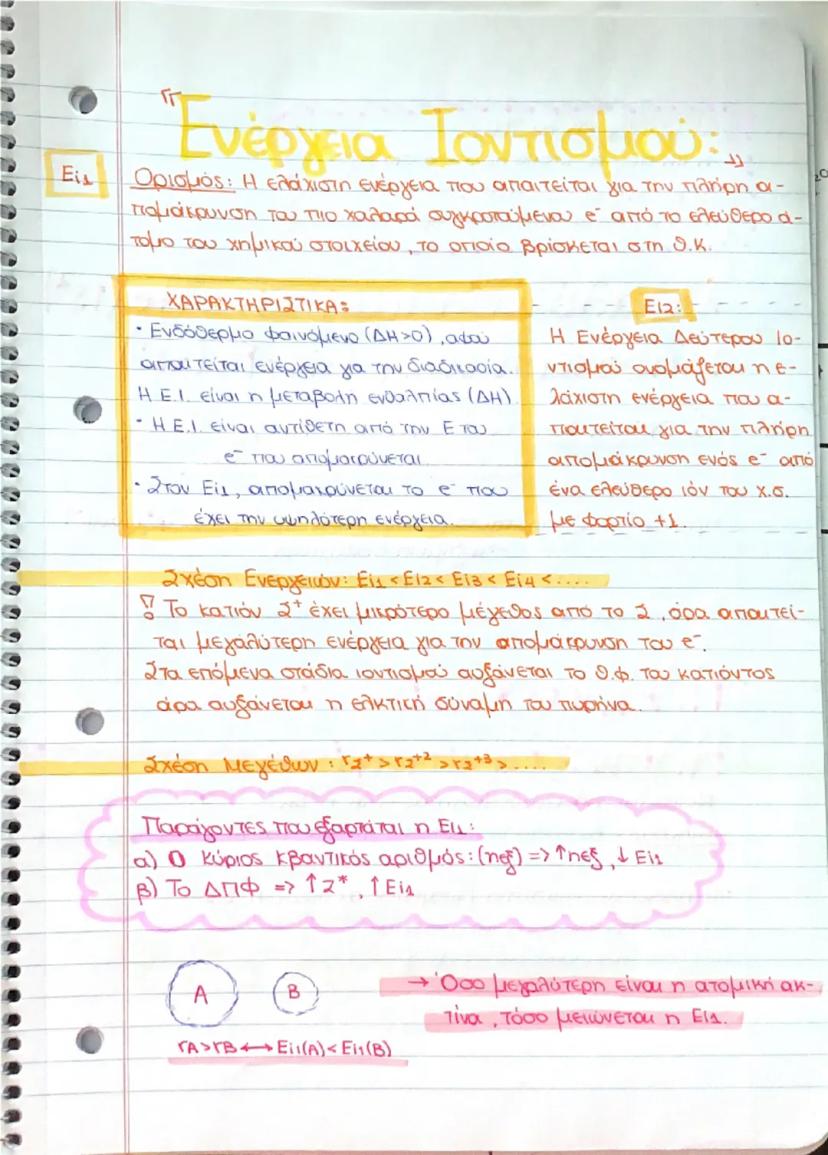 "Ενέργεια Ιοντισμού:"
Ei1
Ορισμός: Η ελάχιστη ενέργεια που απαιτείται για την πλήρη α-
πομάκρυνση του πιο χαλαρά συγκρατούμενου e⁻ από το ελεύθερο ά-
τομο του χημικού στοιχείου, το οποίο βρίσκεται στη Θ.Κ.
ΧΑΡΑΚΤΗΡΙΣΤΙΚΑ:
• Ενδόθερμο φαινόμενο (ΔΗ>0), αφού
απαιτείται ενέργεια για την διαδικασία.
Η Ε.Ι. είναι η μεταβολή ενθαλπίας (ΔΗ)
• Η Ε.Ι. είναι αντίθετη από την Ε του
e⁻ που απομακρύνεται
• Στον Ei1, απομακρύνεται το e⁻ που
έχει την υψηλότερη ενέργεια.
Ei2:
Η Ενέργεια Δεύτερου Ιο-
ντισμού ονομάζεται η ε-
λάχιστη ενέργεια που α-
παιτείται για την πλήρη
απομάκρυνση ενός e⁻ από
ένα ελεύθερο ιόν του χ.σ.
με φορτίο +1.
Σχέση Ενεργειών: Ei1 < Ei2 < Ei3 < Ei4 < ....
! Το κατιόν Σ⁺ έχει μικρότερο μέγεθος από το Σ, άρα απαιτεί-
ται μεγαλύτερη ενέργεια για την απομάκρυνση του e⁻.
Στα επόμενα στάδια ιοντισμού αυξάνεται το θ.φ. του κατιόντος
άρα αυξάνεται η ελκτική δύναμη του πυρήνα.
Σχέση Μεγεθών: rΣ⁺ > rΣ⁺² > rΣ⁺³ > ....
Παράγοντες που εξαρτάται η Ei1:
α) Ο κύριος κβαντικός αριθμός: (nεξ) => ↑nεξ, ↓Ei1
β) Το ΔΠΦ => ↑Z*, ↑Ei1
A B
rA>rB ⟷ Ei1(A) < Ei1(B)
→ Όσο μεγαλύτερη είναι η ατομική ακ-
τίνα, τόσο μειώνεται η Ei1.